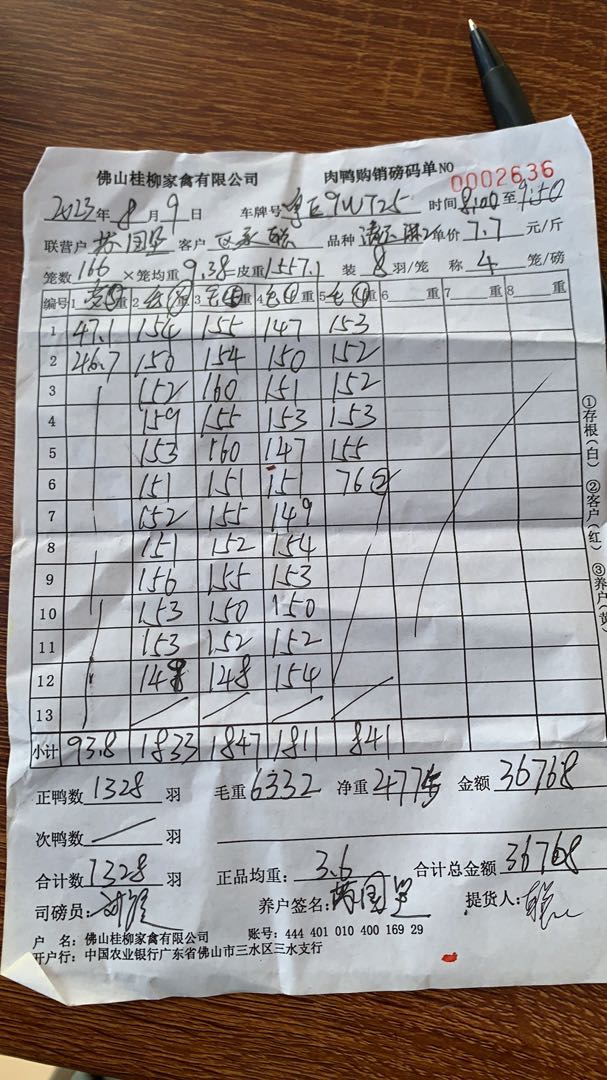 佛山桂柳家禽有限公司 肉鸭购销磅码单 NO 0002636
2023年8月9日 车牌号 粤E9W725 时间 8:00 至 9:50
联营户 客户 品种 单价 7.7 元/斤
笼数 166 ×笼均重 9.38 =皮重 1557.1 装 8 羽/笼 称 4 笼/磅
编号 1 重 2 重 3 重 4 重 5 重 6 重 7 重 8 重
1 47.1 154 155 147 153
2 46.7 150 154 150 152
3 152 160 151 152
4 159 155 153 153
5 153 160 147 155
6 151 151 151 76②
7 152 155 149
8 151 152 154
9 156 155 153
10 153 150 150
11 153 152 152
12 148 148 154
13
小计 93.8 1833 1847 1811 841
正鸭数 1328 羽 毛重 6332 净重 4775 金额 36768
次鸭数 羽
合计数 1328 羽 正品均重: 3.6 合计总金额 36768
司磅员: 养户签名: 提货人:
户 名: 佛山桂柳家禽有限公司 账号: 444 401 010 400 169 29
开户行: 中国农业银行广东省佛山市三水区三水支行
①存根(白) ②客户(红) ③养户(黄